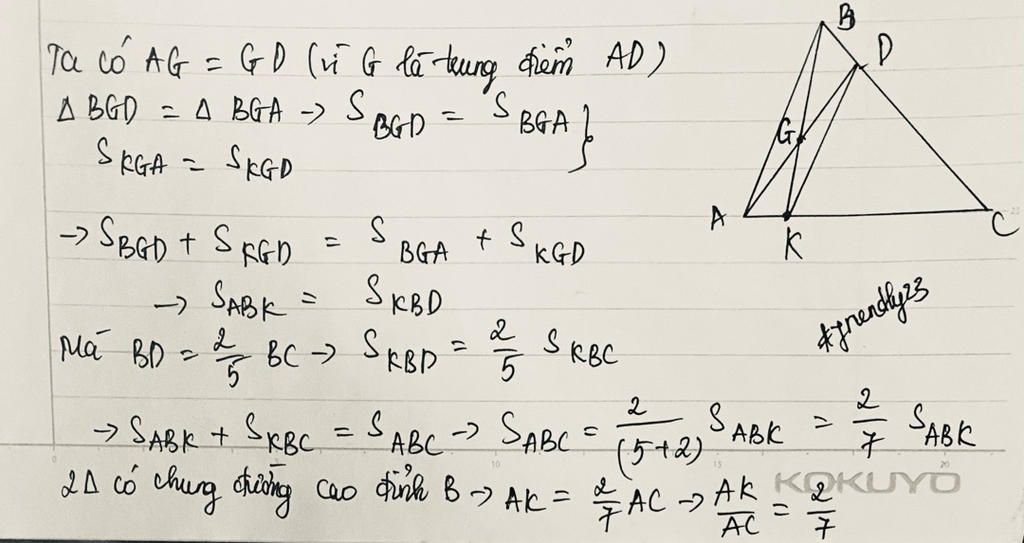 Ta có AG = GD (vì G là trung điểm AD)
Δ BGD = Δ BGA → S BGD = S BGA }
S KGA = S KGD
→ S BGD + S KGD = S BGA + S KGD
→ S ABK = S KBD
Mà BD = 2/5 BC → S KBD = 2/5 S KBC
→ S ABK + S KBC = S ABC → S ABC = 2/(5+2) S ABK = 2/7 S ABK
2Δ có chung đường cao đỉnh B → AK = 2/7 AC → AK/AC = 2/7
B
D
G
A
K
C
#friendly23
KOKUYO
0
10
15
20